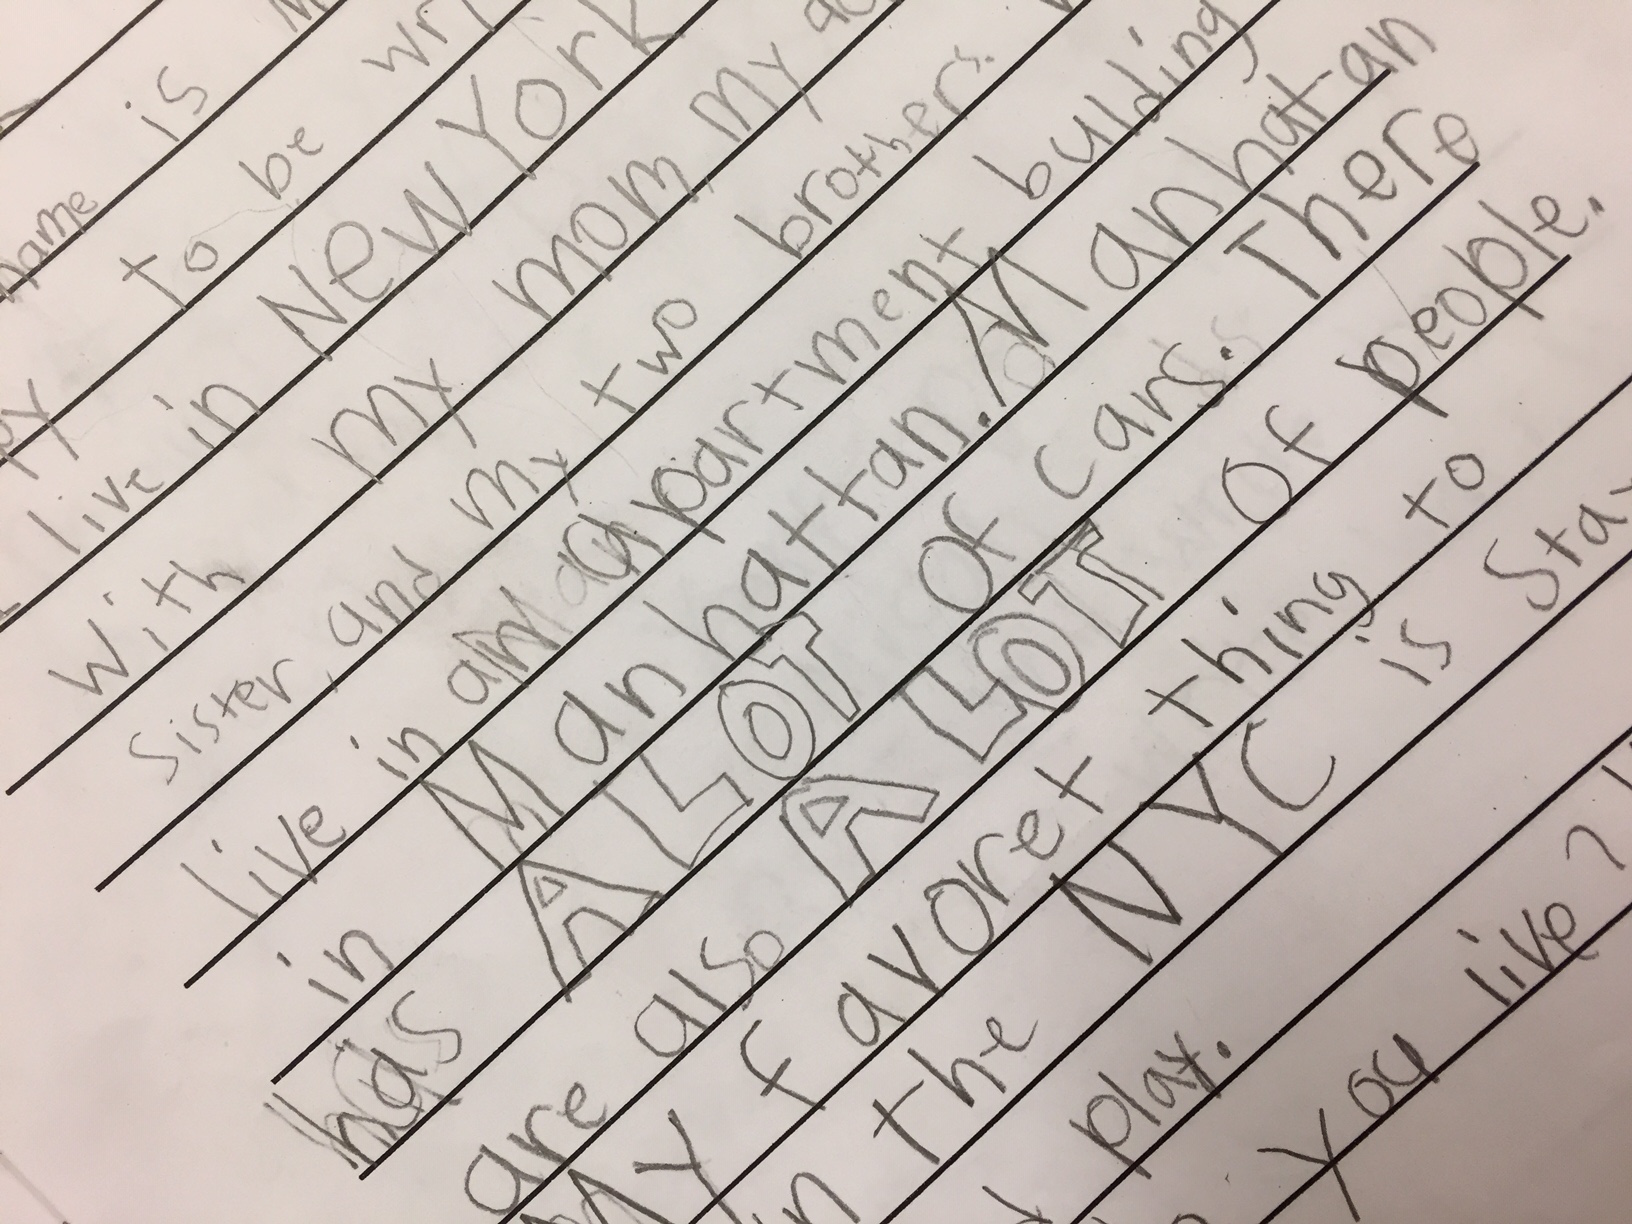 name is
to be
live in New York
With my mom, my
Sister, and my two brothers.
live in an apartment building
in Manhattan. Manhatan
has A LOT Of cars. There
are also A LOT Of people.
My favoret thing to
in the NYC is Stay
play.
You live?